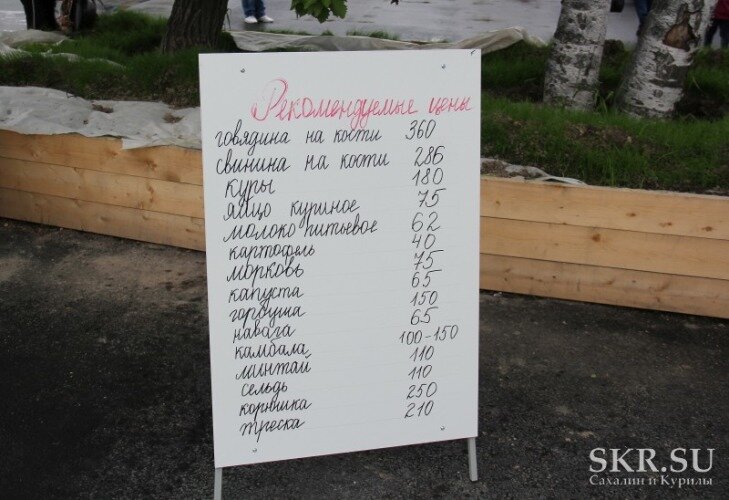 Рекомендуемые цены
говядина на кости 360
свинина на кости 286
куры 180
яйцо куриное 75
молоко питьевое 62
картофель 40
морковь 75
капуста 65
горбуша 150
навага 65
камбала 100-150
минтай 110
сельдь 110
корюшка 250
треска 210
SKR.SU
Сахалин и Курилы